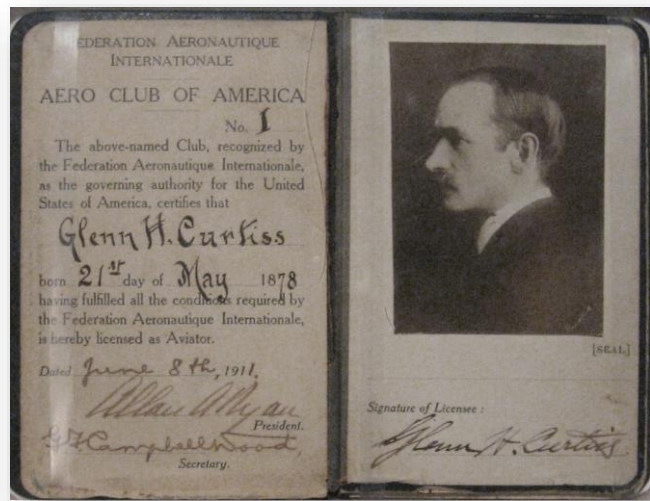 FEDERATION AERONAUTIQUE
INTERNATIONALE
AERO CLUB OF AMERICA
No. 1
The above-named Club, recognized by
the Federation Aeronautique Internationale,
as the governing authority for the United
States of America, certifies that
Glenn H. Curtiss
born 21st day of May 1878
having fulfilled all the conditions required by
the Federation Aeronautique Internationale,
is hereby licensed as Aviator.
Dated June 8th, 1911.
Allan A Ryan
President.
G F Campbell Wood,
Secretary.
[SEAL]
Signature of Licensee :
Glenn H. Curtiss